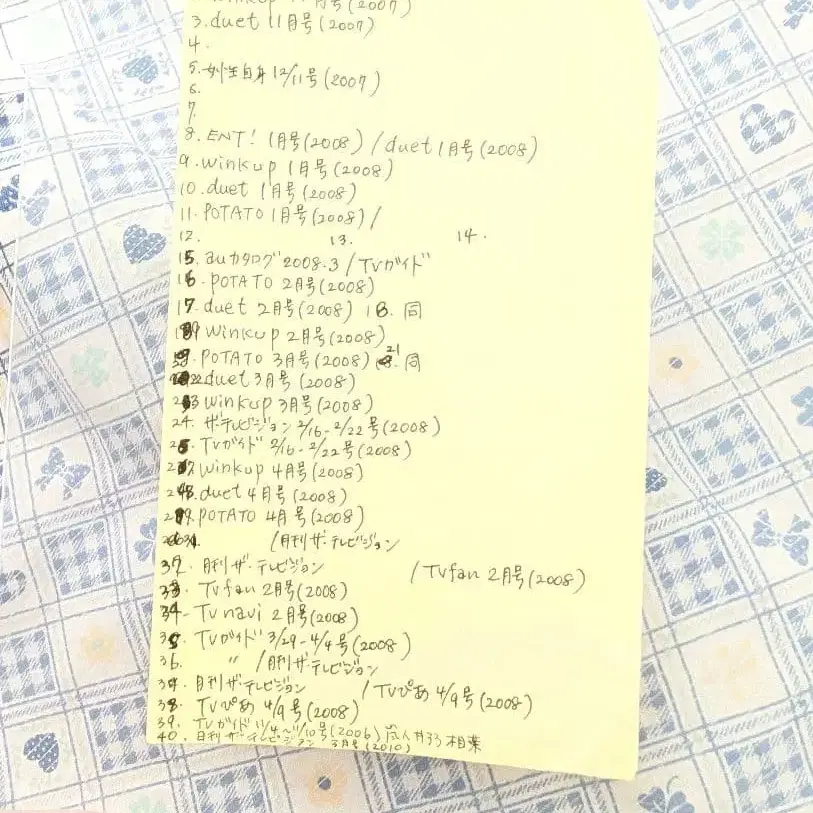 winkup 11月号(2007)
3. duet 11月号(2007)
4.
5. 女性自身 12/11号(2007)
6.
7.
8. ENT! 1月号(2008) / duet 1月号(2008)
9. winkup 1月号(2008)
10. duet 1月号(2008)
11. POTATO 1月号(2008) /
12. 13. 14.
15. auカタログ 2008.3 / TVガイド
16. POTATO 2月号(2008)
17. duet 2月号(2008) 18. 同
19 winkup 2月号(2008)
POTATO 3月号(2008) 21. 同
22 duet 3月号(2008)
23 winkup 3月号(2008)
24. ザ・テレビジョン 2/16-2/22号(2008)
TVガイド 2/16-2/22号(2008)
winkup 4月号(2008)
duet 4月号(2008)
POTATO 4月号(2008)
/月刊ザ・テレビジョン
32. 月刊ザ・テレビジョン / TVfan 2月号(2008)
33. TVfan 2月号(2008)
34- TVnavi 2月号(2008)
35. TVガイド 3/29-4/4号(2008)
36. 〃 /月刊ザ・テレビジョン
月刊ザ・テレビジョン / TVぴあ 4/9号(2008)
38. TVぴあ 4/9号(2008)
39. TVガイド 11/4~11/10号(2006) 相葉
40. 月刊ザ・テレビジョン 3月号(2010)